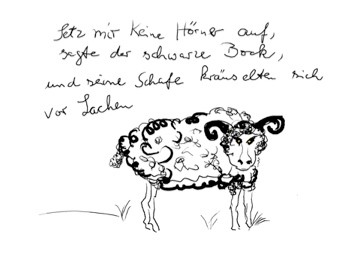 Setz mir keine Hörner auf,
sagte der schwarze Bock,
und seine Schafe kräuselten sich
vor Lachen